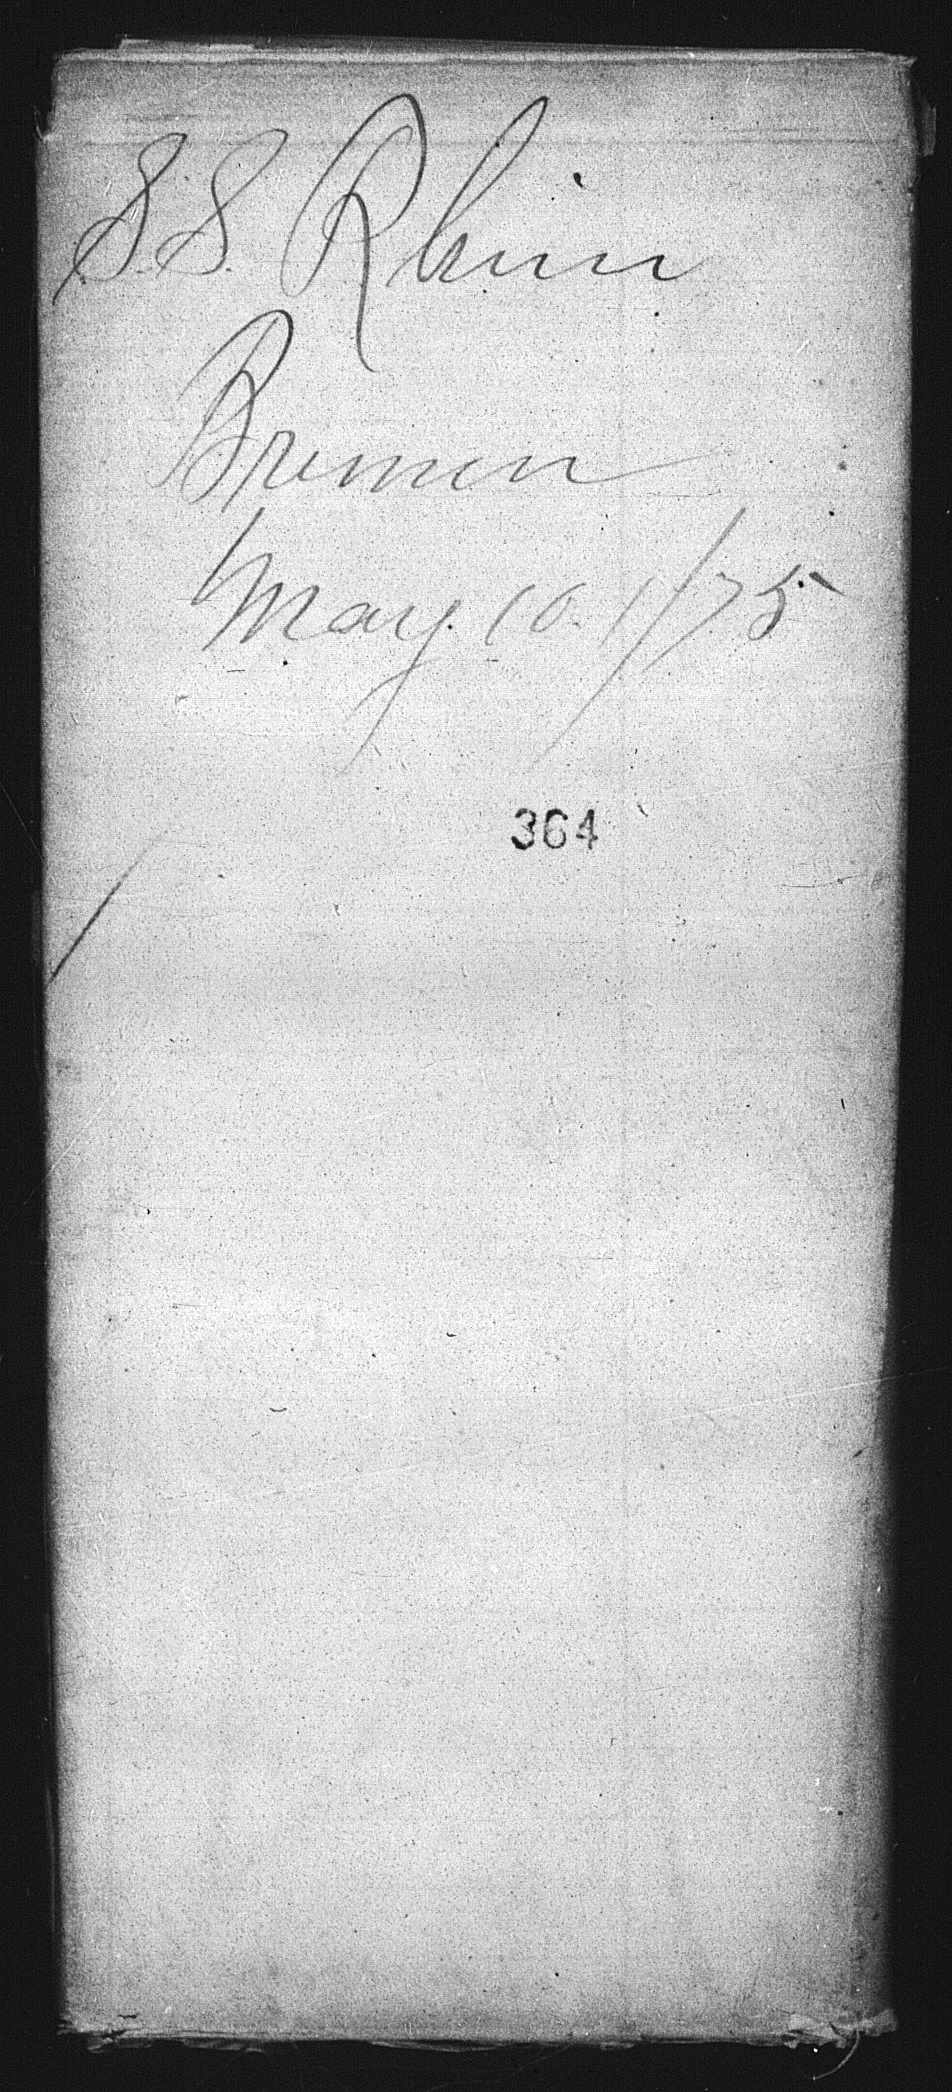 S.S. Rhein
Bremen
May 10. 1/75
364